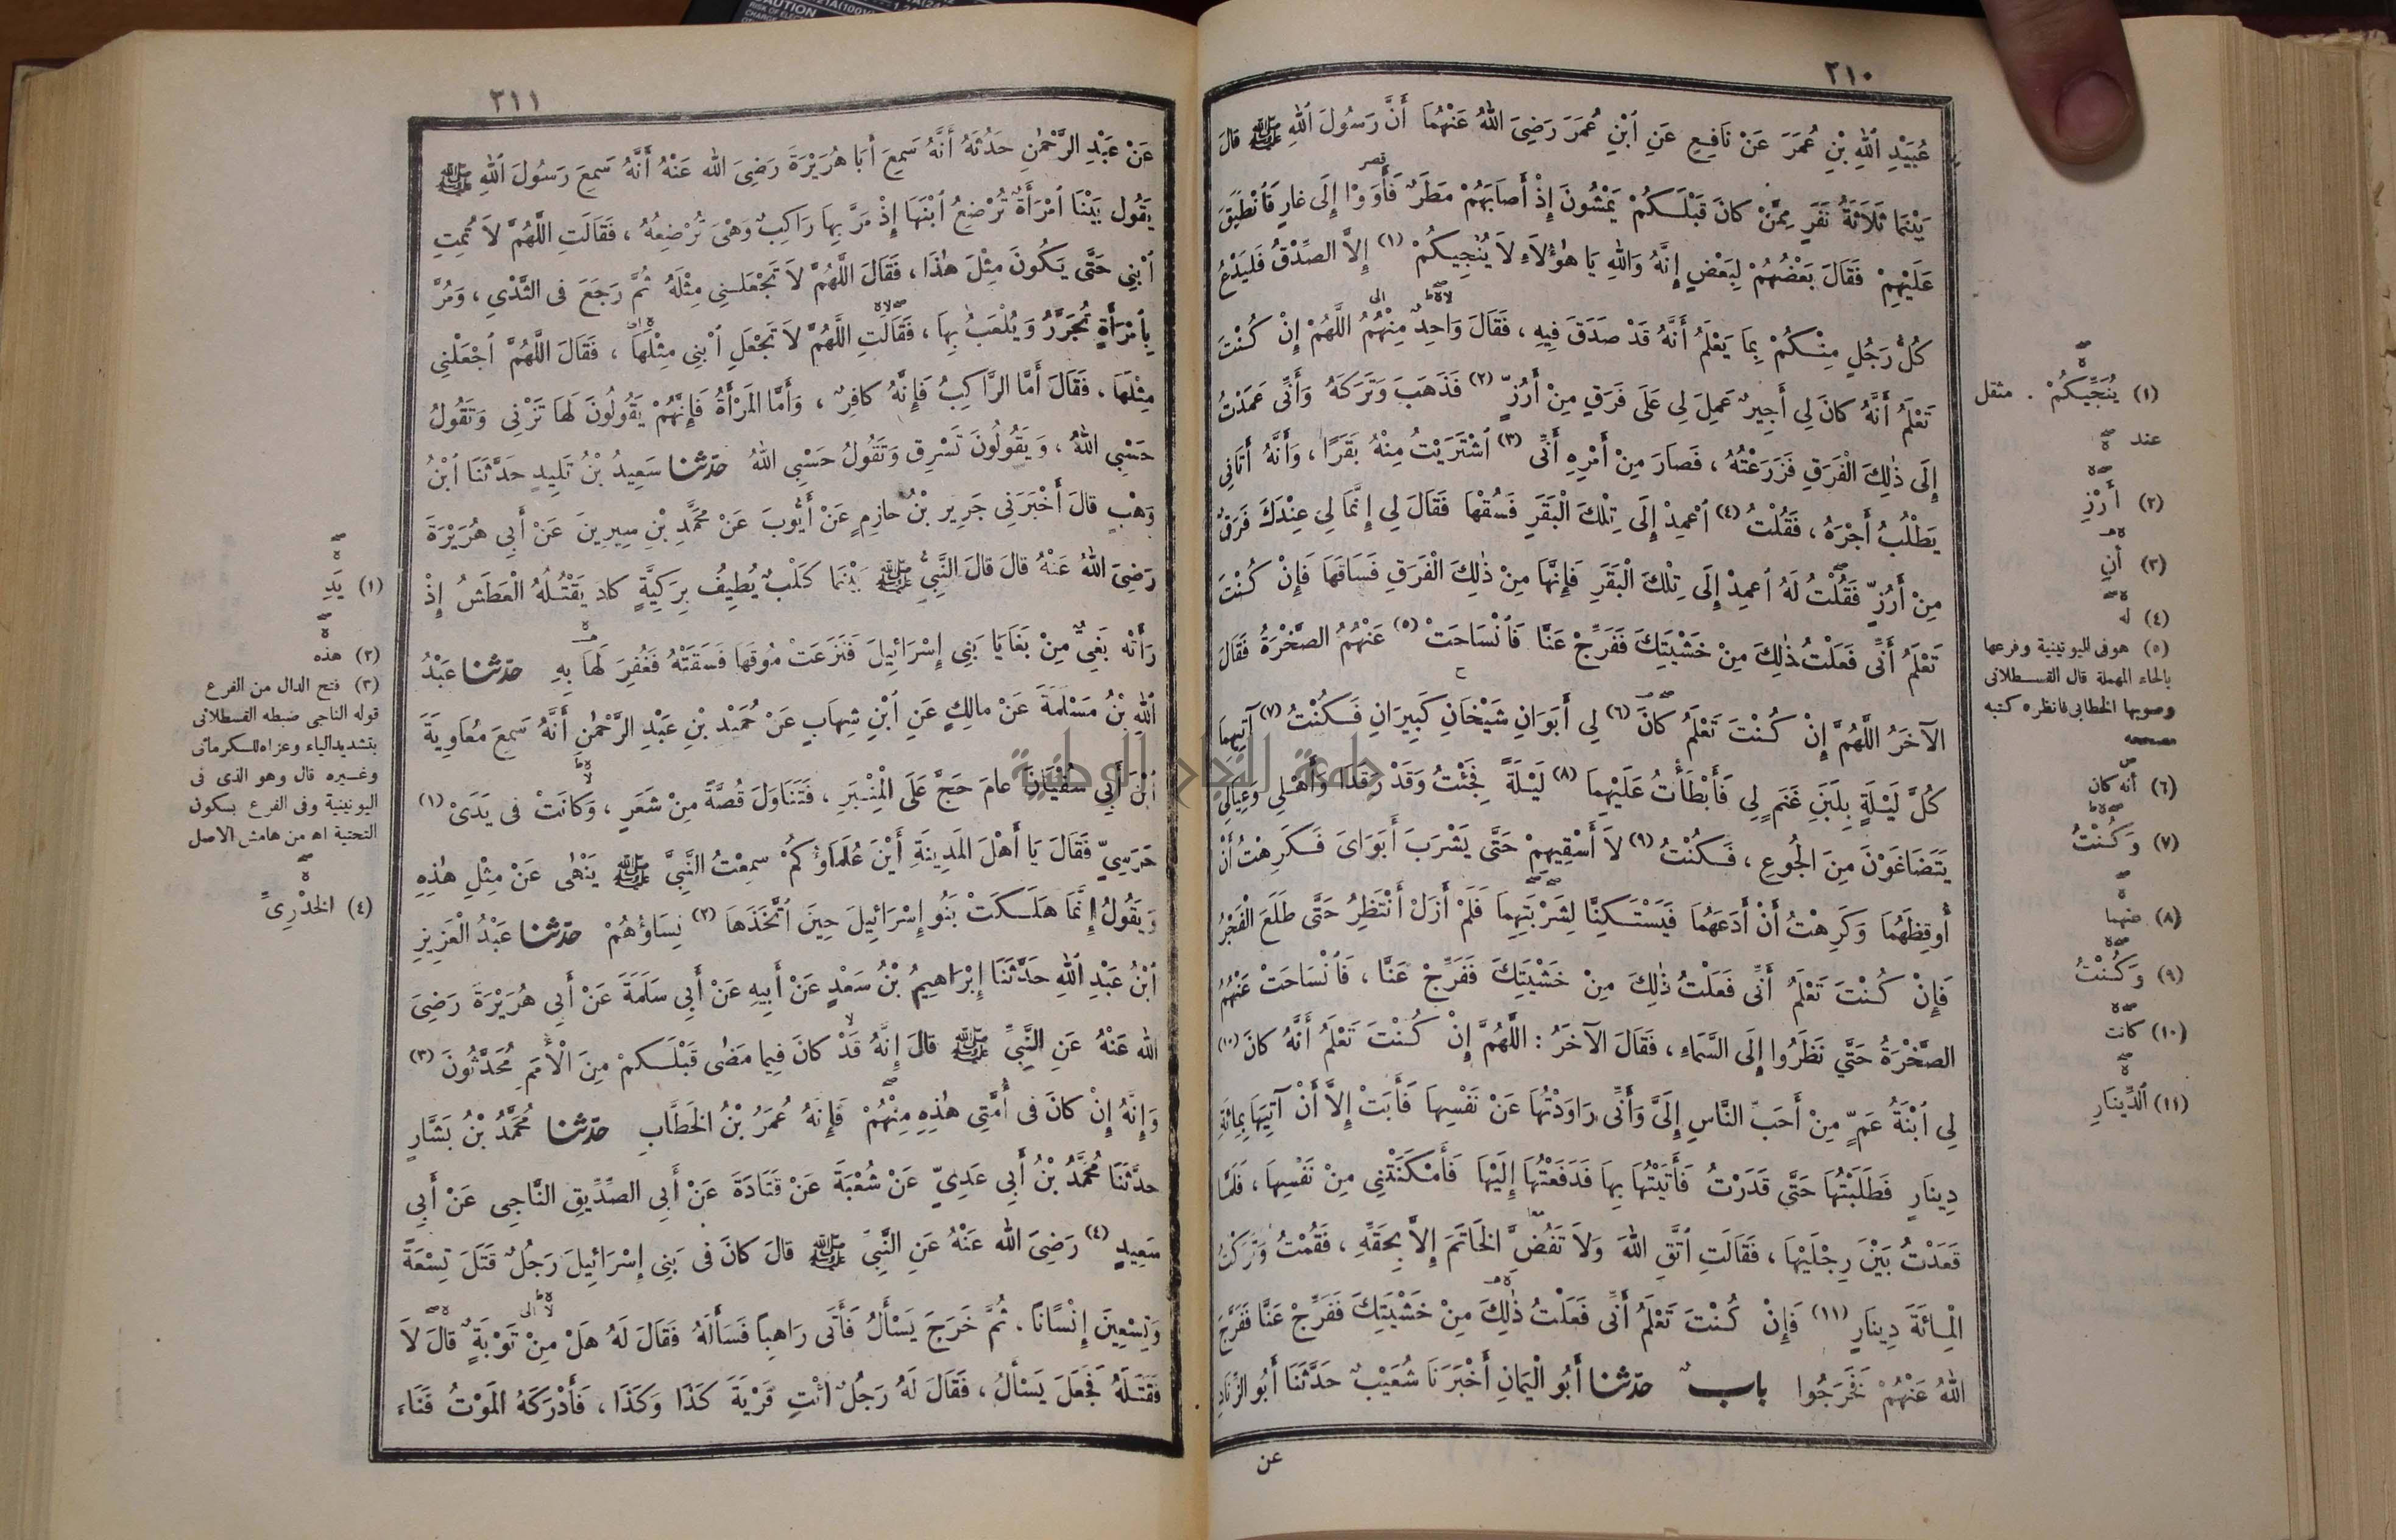 ٢١٠
عُبَيْدِ اللهِ بْنِ عُمَرَ عَنْ نَافِعٍ عَنِ ابْنِ عُمَرَ رَضِيَ اللهُ عَنْهُمَا أَنَّ رَسُولَ اللهِ ﷺ قَالَ
بَيْنَمَا ثَلَاثَةُ نَفَرٍ مِمَّنْ كَانَ قَبْلَكُمْ يَمْشُونَ إِذْ أَصَابَهُمْ مَطَرٌ فَأَوَوْا إِلَى غَارٍ فَانْطَبَقَ
عَلَيْهِمْ فَقَالَ بَعْضُهُمْ لِبَعْضٍ إِنَّهُ وَاللهِ يَا هٰؤُلَاءِ لَا يُنْجِيكُمْ (١) إِلَّا الصِّدْقُ فَلْيَدْعُ
كُلُّ رَجُلٍ مِنْكُمْ بِمَا يَعْلَمُ أَنَّهُ قَدْ صَدَقَ فِيهِ ، فَقَالَ وَاحِدٌ مِنْهُمُ اللَّهُمَّ إِنْ كُنْتَ
تَعْلَمُ أَنَّهُ كَانَ لِي أَجِيرٌ عَمِلَ لِي عَلَى فَرَقٍ مِنْ أَرُزٍّ (٢) فَذَهَبَ وَتَرَكَهُ وَأَنِّي عَمَدْتُ
إِلَى ذٰلِكَ الْفَرَقِ فَزَرَعْتُهُ ، فَصَارَ مِنْ أَمْرِهِ أَنِّي (٣) اشْتَرَيْتُ مِنْهُ بَقَرًا ، وَأَنَّهُ أَتَانِي
يَطْلُبُ أَجْرَهُ ، فَقُلْتُ (٤) اعْمِدْ إِلَى تِلْكَ الْبَقَرِ فَسُقْهَا فَقَالَ لِي إِنَّمَا لِي عِنْدَكَ فَرَقٌ
مِنْ أَرُزٍّ فَقُلْتُ لَهُ اعْمِدْ إِلَى تِلْكَ الْبَقَرِ فَإِنَّهَا مِنْ ذٰلِكَ الْفَرَقِ فَسَاقَهَا فَإِنْ كُنْتَ
تَعْلَمُ أَنِّي فَعَلْتُ ذٰلِكَ مِنْ خَشْيَتِكَ فَفَرِّجْ عَنَّا فَانْسَاحَتْ (٥) عَنْهُمُ الصَّخْرَةُ فَقَالَ
الآخَرُ اللَّهُمَّ إِنْ كُنْتَ تَعْلَمُ كَانَ (٦) لِي أَبَوَانِ شَيْخَانِ كَبِيرَانِ فَكُنْتُ (٧) آتِيهِمَا
كُلَّ لَيْلَةٍ بِلَبَنِ غَنَمٍ لِي فَأَبْطَأْتُ عَلَيْهِمَا (٨) لَيْلَةً فَجِئْتُ وَقَدْ رَقَدَا وَأَهْلِي وَعِيَالِي
يَتَضَاغَوْنَ مِنَ الْجُوعِ ، فَكُنْتُ (٩) لَا أَسْقِيهِمْ حَتَّى يَشْرَبَ أَبَوَايَ فَكَرِهْتُ أَنْ
أُوقِظَهُمَا وَكَرِهْتُ أَنْ أَدَعَهُمَا فَيَسْتَكِنَّا لِشَرْبَتِهِمَا فَلَمْ أَزَلْ أَنْتَظِرُ حَتَّى طَلَعَ الْفَجْرُ
فَإِنْ كُنْتَ تَعْلَمُ أَنِّي فَعَلْتُ ذٰلِكَ مِنْ خَشْيَتِكَ فَفَرِّجْ عَنَّا ، فَانْسَاحَتْ عَنْهُمُ
الصَّخْرَةُ حَتَّى نَظَرُوا إِلَى السَّمَاءِ ، فَقَالَ الآخَرُ : اللَّهُمَّ إِنْ كُنْتَ تَعْلَمُ أَنَّهُ كَانَ (١٠)
لِي ابْنَةُ عَمٍّ مِنْ أَحَبِّ النَّاسِ إِلَيَّ وَأَنِّي رَاوَدْتُهَا عَنْ نَفْسِهَا فَأَبَتْ إِلَّا أَنْ آتِيَهَا بِمِائَةِ
دِينَارٍ فَطَلَبْتُهَا حَتَّى قَدَرْتُ فَأَتَيْتُهَا بِهَا فَدَفَعْتُهَا إِلَيْهَا فَأَمْكَنَتْنِي مِنْ نَفْسِهَا ، فَلَمَّا
قَعَدْتُ بَيْنَ رِجْلَيْهَا ، فَقَالَتِ اتَّقِ اللهَ وَلَا تَفُضَّ الْخَاتَمَ إِلَّا بِحَقِّهِ ، فَقُمْتُ وَتَرَكْتُ
الْمِائَةَ دِينَارٍ (١١) فَإِنْ كُنْتَ تَعْلَمُ أَنِّي فَعَلْتُ ذٰلِكَ مِنْ خَشْيَتِكَ فَفَرِّجْ عَنَّا فَفَرَّجَ
اللهُ عَنْهُمْ فَخَرَجُوا بابٌ حدثنا أَبُو الْيَمَانِ أَخْبَرَنَا شُعَيْبٌ حَدَّثَنَا أَبُو الزِّنَادِ
عن
(١) يُنَجِّيكُمْ . مثقل
عند
(٢) أَرْزٍ
(٣) أَنِ
(٤) له
(٥) هو في اليونينية وفرعها
بالحاء المهملة قال القسطلانى
وصوبها الخطابى فانظره كتبه
مصححه
(٦) أنه كان
(٧) وَكُنْتُ
(٨) عنهما
(٩) وَكُنْتُ
(١٠) كانت
(١١) الدِّينَارِ
٢١١
عَنْ عَبْدِ الرَّحْمٰنِ حَدَّثَهُ أَنَّهُ سَمِعَ أَبَا هُرَيْرَةَ رَضِيَ الله عَنْهُ أَنَّهُ سَمِعَ رَسُولَ اللهِ ﷺ
يَقُولُ بَيْنَا امْرَأَةٌ تُرْضِعُ ابْنَهَا إِذْ مَرَّ بِهَا رَاكِبٌ وَهْيَ تُرْضِعُهُ ، فَقَالَتِ اللَّهُمَّ لَا تُمِتِ
ابْنِي حَتَّى يَكُونَ مِثْلَ هٰذَا ، فَقَالَ اللَّهُمَّ لَا تَجْعَلْنِي مِثْلَهُ ثُمَّ رَجَعَ فِي الثَّدْيِ ، وَمُرَّ
بِامْرَأَةٍ تُجَرَّرُ وَيُلْعَبُ بِهَا ، فَقَالَتِ اللَّهُمَّ لَا تَجْعَلِ ابْنِي مِثْلَهَا ، فَقَالَ اللَّهُمَّ اجْعَلْنِي
مِثْلَهَا ، فَقَالَ أَمَّا الرَّاكِبُ فَإِنَّهُ كَافِرٌ ، وَأَمَّا الْمَرْأَةُ فَإِنَّهُمْ يَقُولُونَ لَهَا تَزْنِي وَتَقُولُ
حَسْبِي اللهُ ، وَيَقُولُونَ تَسْرِقُ وَتَقُولُ حَسْبِي اللهُ حدثنا سَعِيدُ بْنُ تَلِيدٍ حَدَّثَنَا ابْنُ
وَهْبٍ قَالَ أَخْبَرَنِي جَرِيرُ بْنُ حَازِمٍ عَنْ أَيُّوبَ عَنْ مُحَمَّدِ بْنِ سِيرِينَ عَنْ أَبِي هُرَيْرَةَ
رَضِيَ اللهُ عَنْهُ قَالَ قَالَ النَّبِيُّ ﷺ بَيْنَمَا كَلْبٌ يُطِيفُ بِرَكِيَّةٍ كَادَ يَقْتُلُهُ الْعَطَشُ إِذْ
رَأَتْهُ بَغِيٌّ مِنْ بَغَايَا بَنِي إِسْرَائِيلَ فَنَزَعَتْ مُوقَهَا فَسَقَتْهُ فَغُفِرَ لَهَا بِهِ حدثنا عَبْدُ
اللهِ بْنُ مَسْلَمَةَ عَنْ مَالِكٍ عَنِ ابْنِ شِهَابٍ عَنْ حُمَيْدِ بْنِ عَبْدِ الرَّحْمٰنِ أَنَّهُ سَمِعَ مُعَاوِيَةَ
ابْنَ أَبِي سُفْيَانَ عَامَ حَجَّ عَلَى الْمِنْبَرِ ، فَتَنَاوَلَ قُصَّةً مِنْ شَعَرٍ ، وَكَانَتْ فِي يَدَيْ (١)
حَرَسِيٍّ فَقَالَ يَا أَهْلَ الْمَدِينَةِ أَيْنَ عُلَمَاؤُكُمْ سَمِعْتُ النَّبِيَّ ﷺ يَنْهَى عَنْ مِثْلِ هٰذِهِ
وَيَقُولُ إِنَّمَا هَلَكَتْ بَنُو إِسْرَائِيلَ حِينَ اتَّخَذَهَا (٢) نِسَاؤُهُمْ حدثنا عَبْدُ الْعَزِيزِ
ابْنُ عَبْدِ اللهِ حَدَّثَنَا إِبْرَاهِيمُ بْنُ سَعْدٍ عَنْ أَبِيهِ عَنْ أَبِي سَلَمَةَ عَنْ أَبِي هُرَيْرَةَ رَضِيَ
الله عَنْهُ عَنِ النَّبِيِّ ﷺ قَالَ إِنَّهُ قَدْ كَانَ فِيمَا مَضَى قَبْلَكُمْ مِنَ الْأُمَمِ مُحَدَّثُونَ (٣)
وَإِنَّهُ إِنْ كَانَ فِي أُمَّتِي هٰذِهِ مِنْهُمْ فَإِنَّهُ عُمَرُ بْنُ الْخَطَّابِ حدثنا مُحَمَّدُ بْنُ بَشَّارٍ
حَدَّثَنَا مُحَمَّدُ بْنُ أَبِي عَدِيٍّ عَنْ شُعْبَةَ عَنْ قَتَادَةَ عَنْ أَبِي الصِّدِّيقِ النَّاجِي عَنْ أَبِي
سَعِيدٍ (٤) رَضِيَ الله عَنْهُ عَنِ النَّبِيِّ ﷺ قَالَ كَانَ فِي بَنِي إِسْرَائِيلَ رَجُلٌ قَتَلَ تِسْعَةً
وَتِسْعِينَ إِنْسَانًا . ثُمَّ خَرَجَ يَسْأَلُ فَأَتَى رَاهِبًا فَسَأَلَهُ فَقَالَ لَهُ هَلْ مِنْ تَوْبَةٍ قَالَ لَا
فَقَتَلَهُ فَجَعَلَ يَسْأَلُ ، فَقَالَ لَهُ رَجُلٌ ائْتِ قَرْيَةَ كَذَا وَكَذَا ، فَأَدْرَكَهُ الْمَوْتُ فَنَاءَ
(١) يَدِ
(٢) هذه
(٣) فتح الدال من الفرع
قوله الناجى ضبطه القسطلانى
بتشديد الياء وعزاه للكرمانى
وغيره قال وهو الذى فى
اليونينية وفى الفرع بسكون
التحتية اه من هامش الاصل
(٤) الخُدْرِيِّ
جامعة النجاح الوطنية